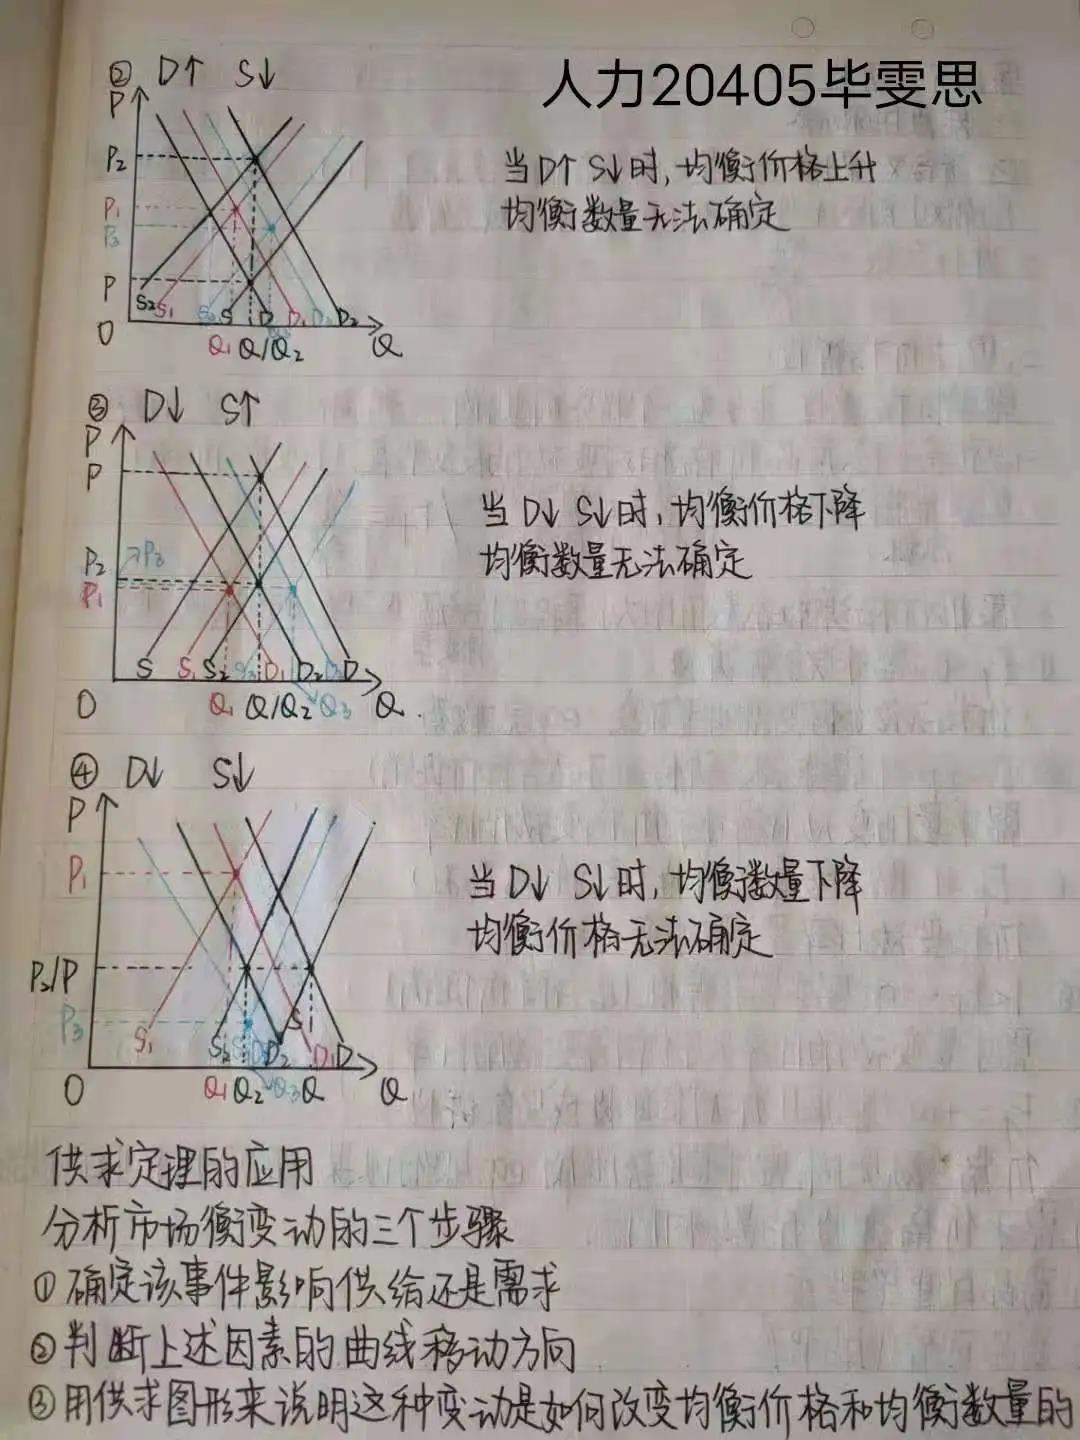 人力20405毕雯思
② D↑ S↓
P
P₂
P₁
P₃
P
S₂ S₁ S₃ S D D₁ D₃ D₂
O Q₁ Q/Q₂ Q
当D↑ S↓时,均衡价格上升
均衡数量无法确定
③ D↓ S↑
P
P
P₂ P₃
P₁
S S₁ S₂ S₃ D₁ D₂ D₃ D
O Q₁ Q/Q₂ Q₃ Q
当D↓ S↓时,均衡价格下降
均衡数量无法确定
④ D↓ S↓
P
P₁
P₂/P
P₃
S
S₁ D₂ D₁ D
O Q₁ Q₂ Q₃ Q Q
当D↓ S↓时,均衡数量下降
均衡价格无法确定
供求定理的应用
分析市场衡变动的三个步骤
①确定该事件影响供给还是需求
②判断上述因素的曲线移动方向
③用供求图形来说明这种变动是如何改变均衡价格和均衡数量的